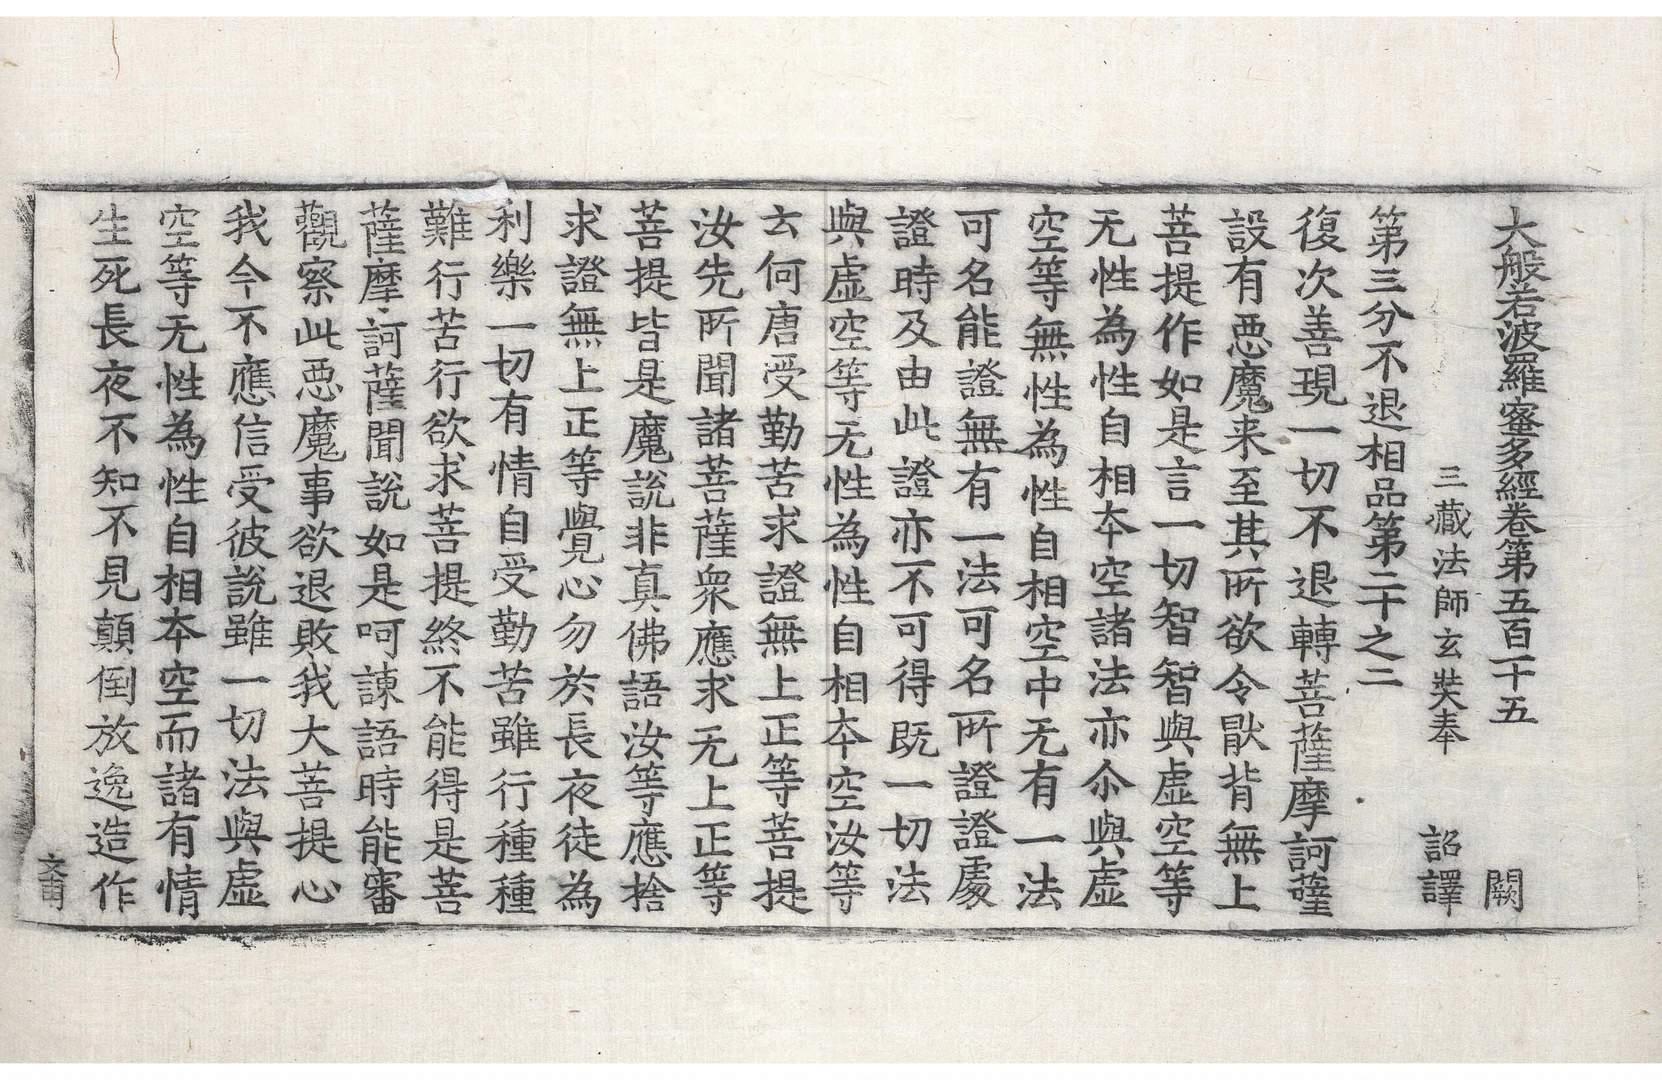 大般若波羅蜜多經卷第五百一十五 闕
三藏法師玄奘奉 詔譯
第三分不退相品第二十之二
復次善現一切不退轉菩薩摩訶薩
設有惡魔来至其所欲令猒背無上
菩提作如是言一切智智與虛空等
无性為性自相本空諸法亦尒與虛
空等無性為性自相空中无有一法
可名能證無有一法可名所證證處
證時及由此證亦不可得既一切法
與虛空等无性為性自相夲空汝等
云何唐受勤苦求證無上正等菩提
汝先所聞諸菩薩衆應求无上正等
菩提皆是魔說非真佛語汝等應捨
求證無上正等覺心勿於長夜徒為
利樂一切有情自受勤苦雖行種種
難行苦行欲求菩提終不能得是菩
薩摩訶薩聞說如是呵諫語時能審
觀察此惡魔事欲退敗我大菩提心
我今不應信受彼說雖一切法與虛
空等无性為性自相夲空而諸有情
生死長夜不知不見顛倒放逸造作
文甫